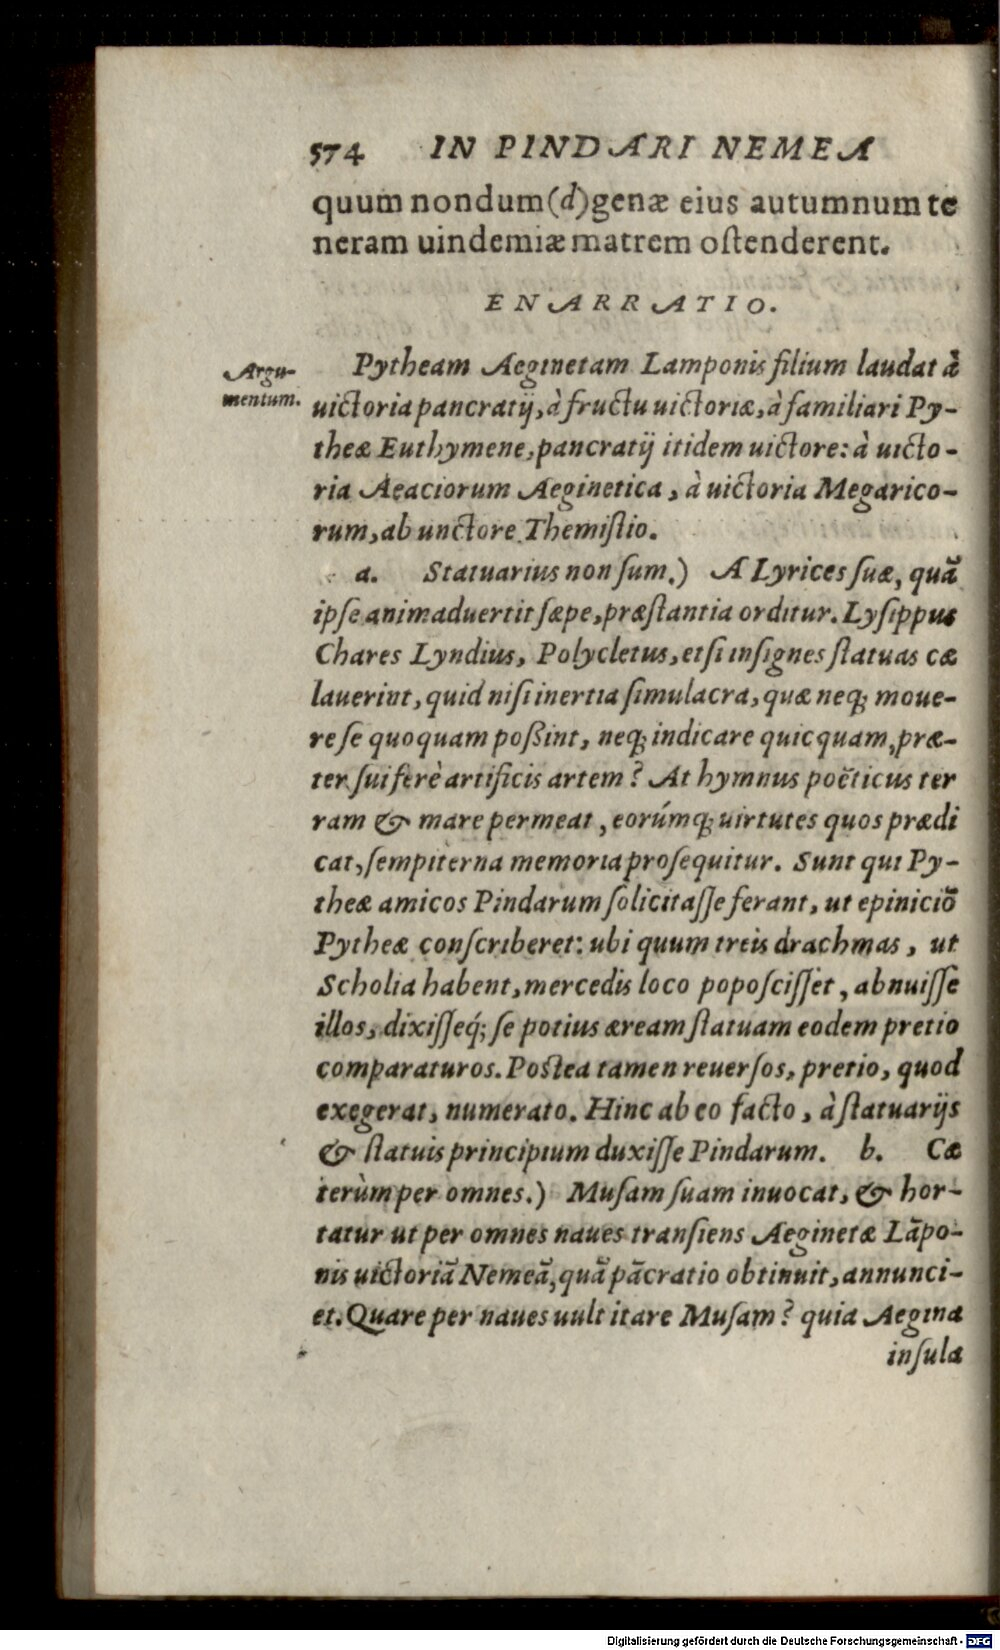 574 IN PINDARI NEMEA
quum nondum (d) genæ eius autumnum te
neram uindemiæ matrem ostenderent.
ENARRATIO.
Argu-
mentum.
Pytheam Aeginetam Lamponis filium laudat à
uictoria pancratij, à fructu uictoriæ, à familiari Py-
theæ Euthymene, pancratij itidem uictore: à uicto-
ria Aeaciorum Aeginetica, à uictoria Megarico-
rum, ab unctore Themistio.
a. Statuarius non sum.) A Lyrices suæ, quã
ipse animaduertit sæpe, præstantia orditur. Lysippus
Chares Lyndius, Polycletus, etsi insignes statuas cæ
lauerint, quid nisi inertia simulacra, quæ neq; moue-
re se quoquam poßint, neq; indicare quicquam, præ-
ter sui ferè artificis artem? At hymnus poëticus ter
ram & mare permeat, eorúmq; uirtutes quos prædi
cat, sempiterna memoria prosequitur. Sunt qui Py-
theæ amicos Pindarum solicitasse ferant, ut epiniciõ
Pytheæ conscriberet: ubi quum treis drachmas, ut
Scholia habent, mercedis loco poposcisset, abnuisse
illos, dixisseq́; se potius æream statuam eodem pretio
comparaturos. Postea tamen reuersos, pretio, quod
exegerat, numerato. Hinc ab eo facto, à statuarijs
& statuis principium duxisse Pindarum. b. Cæ
terùm per omnes.) Musam suam inuocat, & hor-
tatur ut per omnes naues transiens Aeginetæ Lãpo-
nis uictoriã Nemeã, quã pãcratio obtinuit, annunci-
et. Quare per naues uult itare Musam? quia Aegina
insula
Digitalisierung gefördert durch die Deutsche Forschungsgemeinschaft - DFG